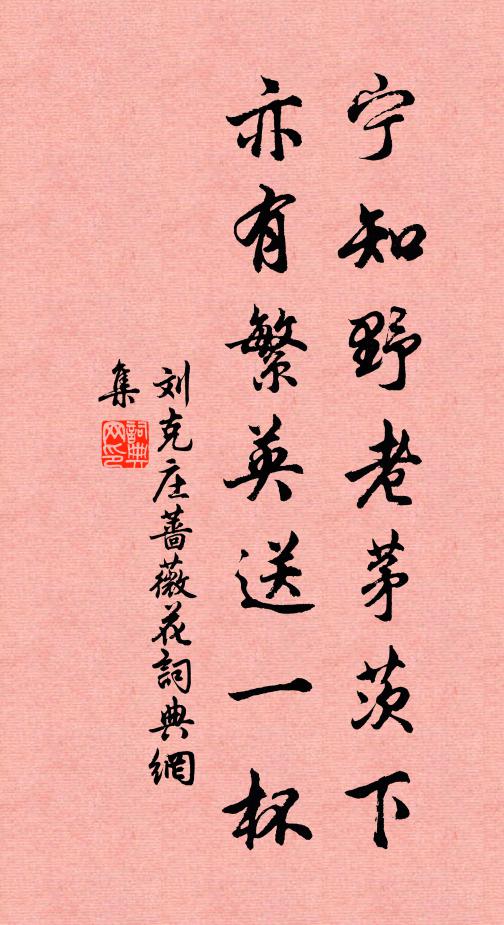 宁知野老茅茨下
亦有繁英送一杯
刘克庄蔷薇花詞典網
集
詞典网印